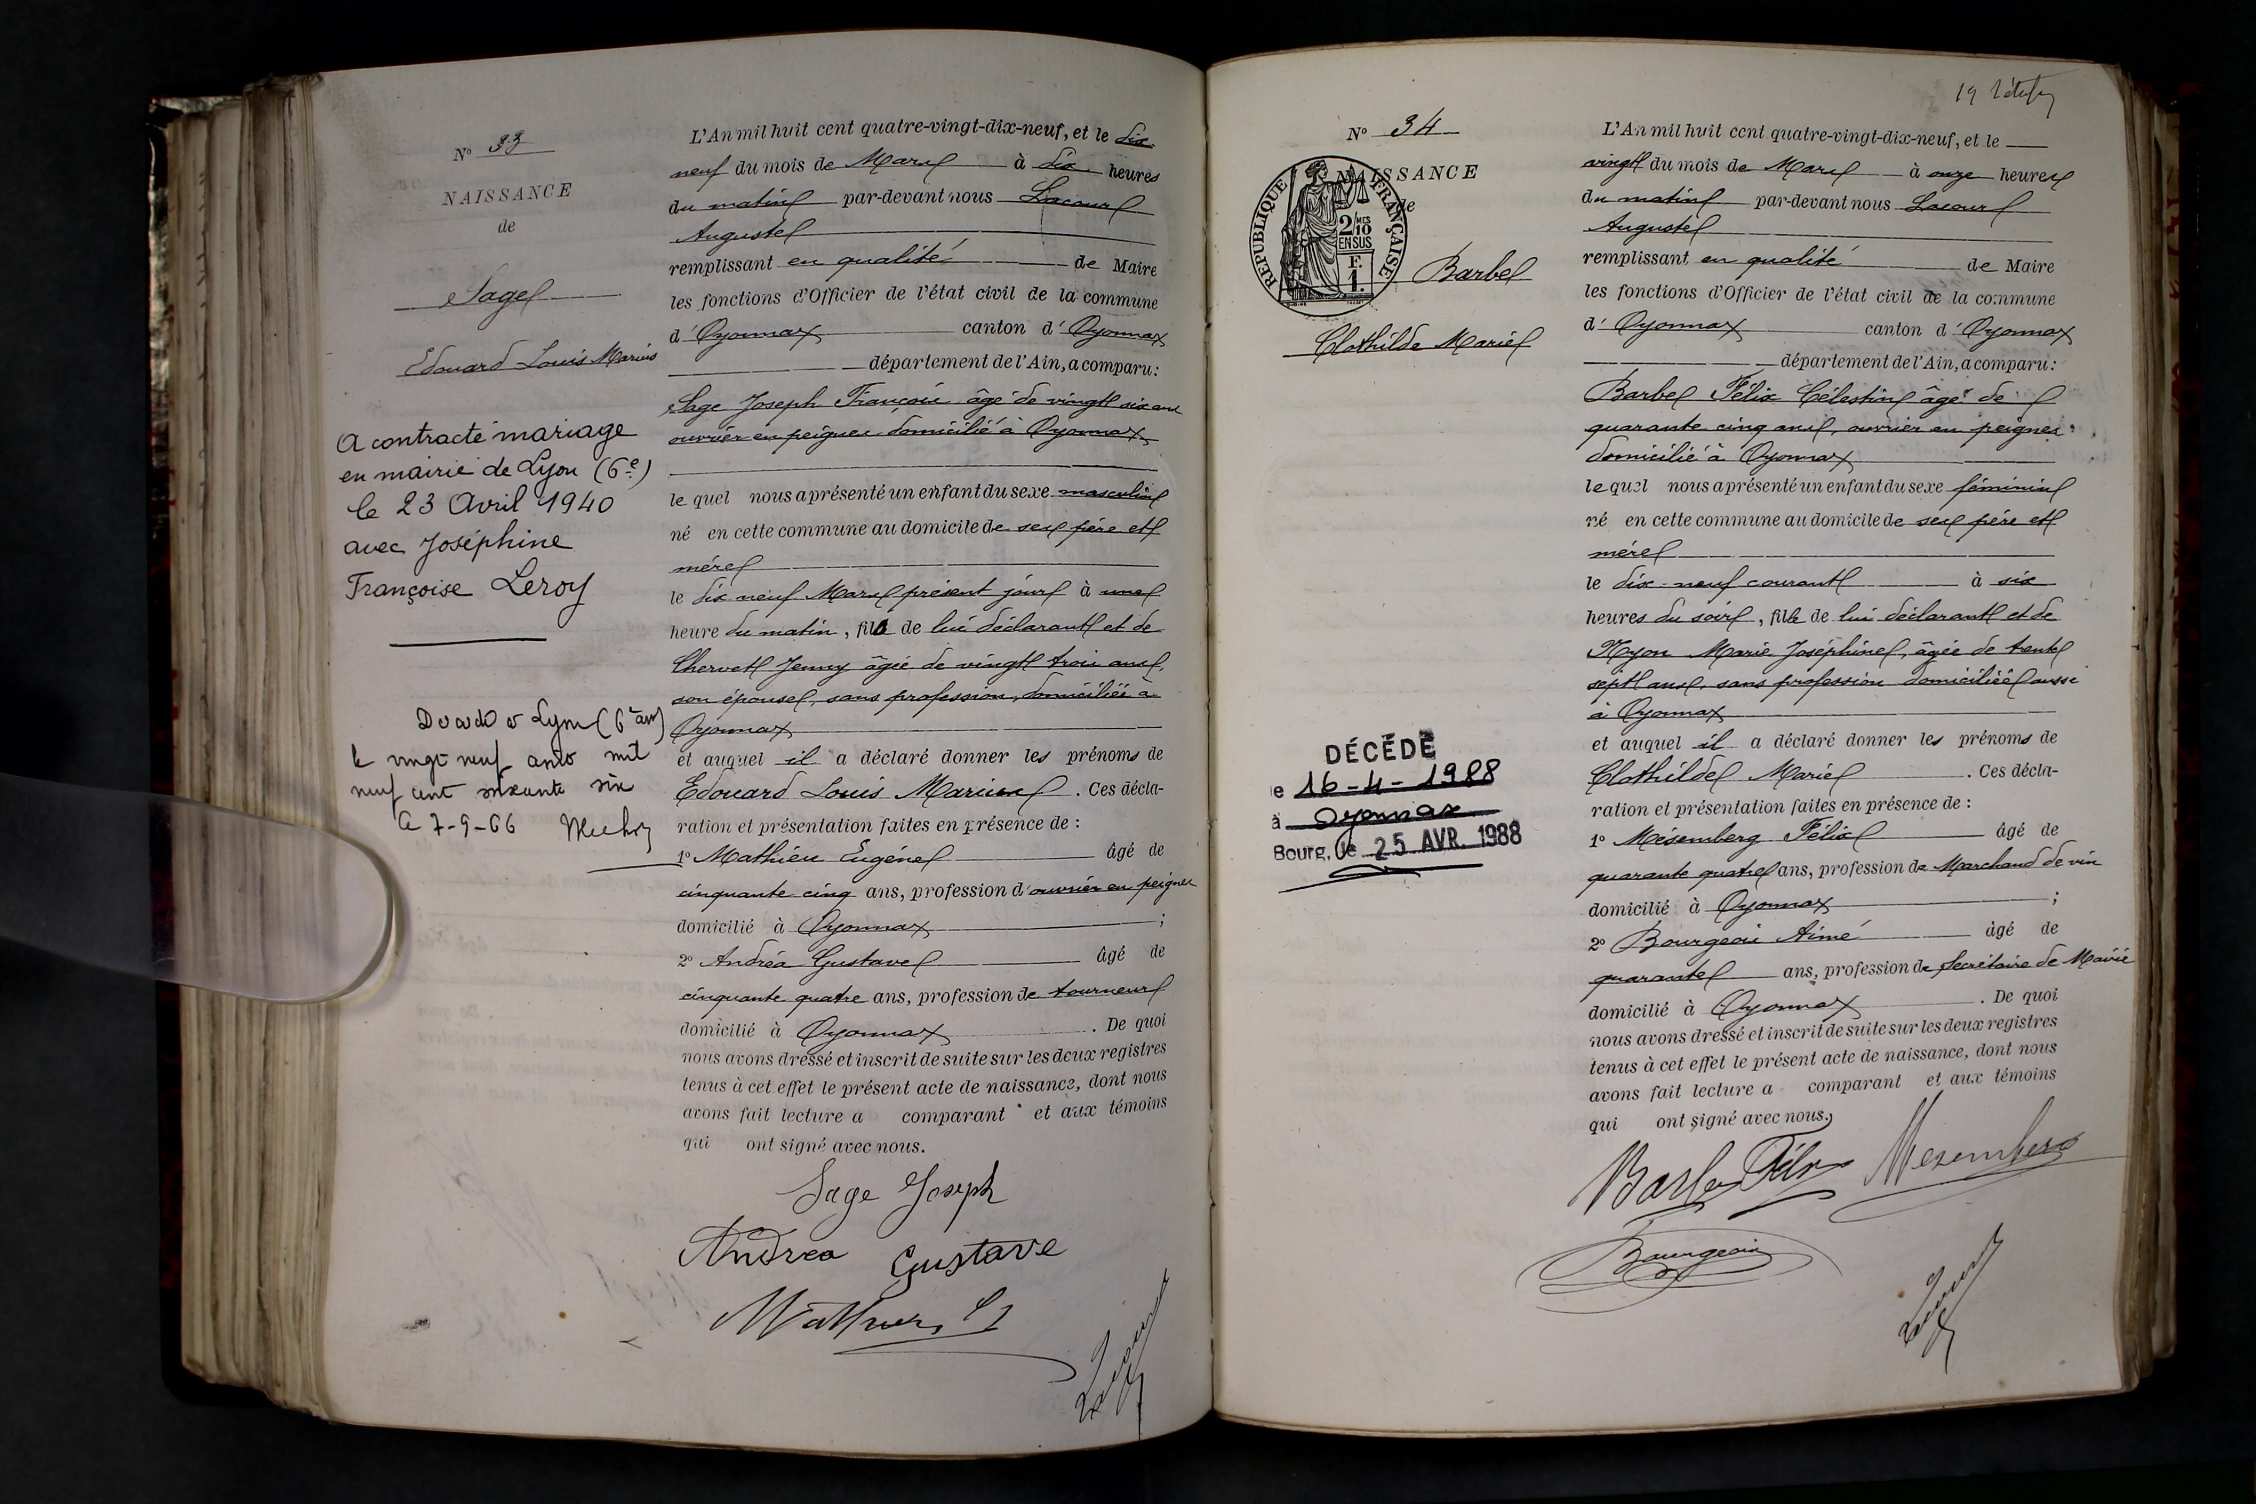 N° 33
NAISSANCE
de
Sage
Edouard Louis Marius
A contracté mariage
en mairie de Lyon (6e)
le 23 Avril 1940
avec Joséphine
Françoise Leroy
à Lyon (6e arr)
le vingt neuf mil
neuf cent soixante six
7-9-66
L'An mil huit cent quatre-vingt-dix-neuf, et le dix
neuf du mois de Mars à dix heures
du matin par-devant nous Lacour
Auguste
remplissant en qualité de Maire
les fonctions d'Officier de l'état civil de la commune
d' Oyonnax canton d' Oyonnax
département de l'Ain, a comparu:
Sage Joseph François âgé de vingt six ans
ouvrier en peignes domicilié à Oyonnax
le quel nous a présenté un enfant du sexe masculin
né en cette commune au domicile de ses père et
mère
le dix neuf Mars présent jour à une
heure du matin, fils de lui déclarant et de
Chervet Jenny âgée de vingt trois ans,
son épouse, sans profession, domiciliée à
Oyonnax
et auquel il a déclaré donner les prénoms de
Edouard Louis Marius. Ces décla-
ration et présentation faites en présence de :
1° Mathieu Eugène âgé de
cinquante cinq ans, profession d'ouvrier en peignes
domicilié à Oyonnax ;
2° Andréa Gustave âgé de
cinquante quatre ans, profession de tourneur
domicilié à Oyonnax. De quoi
nous avons dressé et inscrit de suite sur les deux registres
tenus à cet effet le présent acte de naissance, dont nous
avons fait lecture a comparant et aux témoins
qui ont signé avec nous.
Sage Joseph
Andrea Gustave
Mathieu
Lacour
19
N° 34
NAISSANCE
de
REPUBLIQUE FRANÇAISE
2/10 MES
EN SUS
F.
1.
Barbe
Clothilde Marie
DÉCÉDÉ
le 16-4-1988
à Oyonnax
Bourg, le 25 AVR. 1988
L'An mil huit cent quatre-vingt-dix-neuf, et le
vingt du mois de Mars à onze heures
du matin par-devant nous Lacour
Auguste
remplissant en qualité de Maire
les fonctions d'Officier de l'état civil de la commune
d' Oyonnax canton d' Oyonnax
département de l'Ain, a comparu:
Barbe Félix Célestin âgé de
quarante cinq ans, ouvrier en peignes
domicilié à Oyonnax
le quel nous a présenté un enfant du sexe féminin
né en cette commune au domicile de ses père et
mère
le dix-neuf courant à six
heures du soir, fille de lui déclarant et de
Nyon Marie Joséphine, âgée de trente
sept ans, sans profession domiciliée aussi
à Oyonnax
et auquel il a déclaré donner les prénoms de
Clothilde Marie. Ces décla-
ration et présentation faites en présence de :
1° Mésemberg Félix âgé de
quarante quatre ans, profession de Marchand de vin
domicilié à Oyonnax ;
2° Bourgeois Aimé âgé de
quarante ans, profession de Secrétaire de Mairie
domicilié à Oyonnax. De quoi
nous avons dressé et inscrit de suite sur les deux registres
tenus à cet effet le présent acte de naissance, dont nous
avons fait lecture a comparant et aux témoins
qui ont signé avec nous.
Barbe Félix Mesemberg
Bourgeois
Lacour